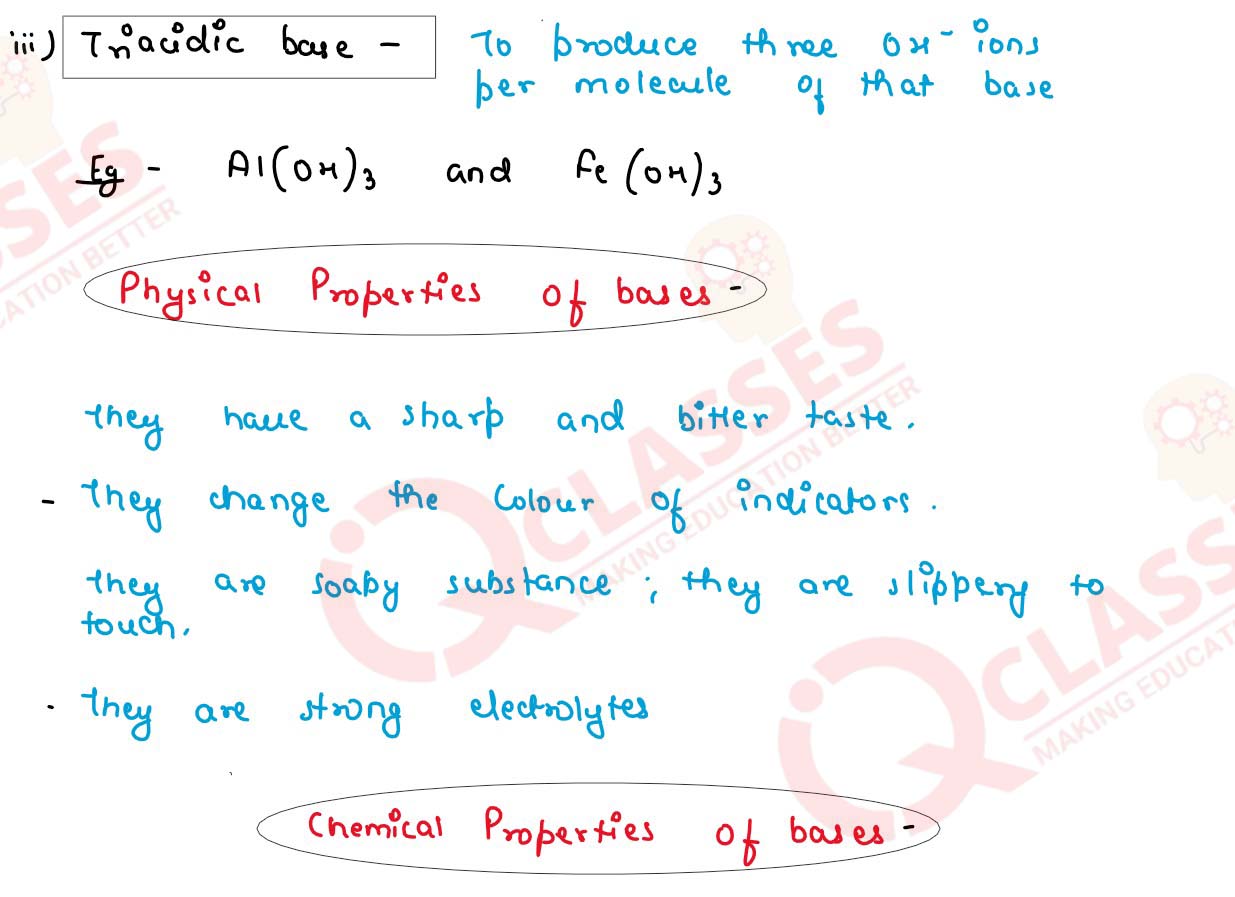 iii) Triacidic base - To produce three OH⁻ ions
per molecule of that base
Eg - Al(OH)₃ and Fe(OH)₃
Physical Properties of bases -
They have a sharp and bitter taste.
- They change the colour of indicators.
They are soapy substance ; they are slippery to
touch.
. They are strong electrolytes
Chemical Properties of bases -
SSES
CATION BETTER
iQ CLASSES
MAKING EDUCATION BETTER
iQ CLASSES
MAKING EDUCAT